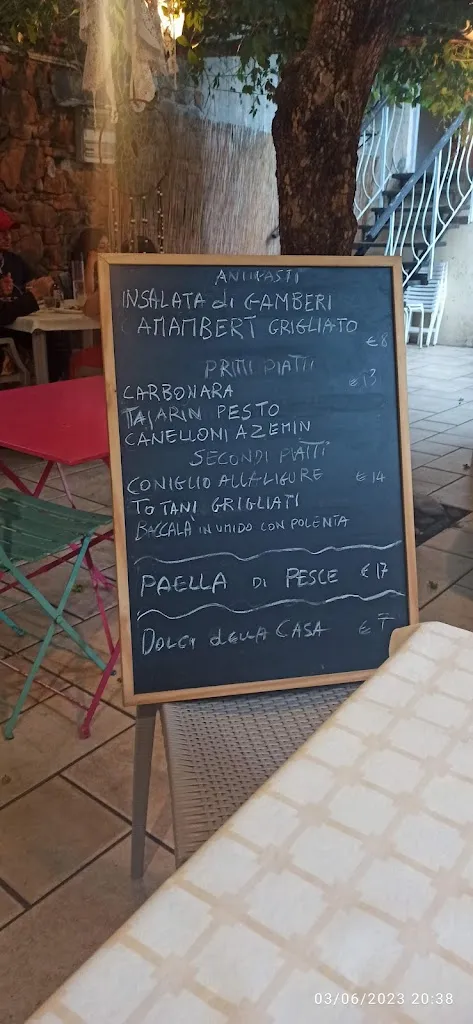 ANTIPASTI
INSALATA di GAMBERI
CAMAMBERT GRIGLIATO
€8
PRIMI PIATTI
€13
CARBONARA
TAJARIN PESTO
CANELLONI AZEMIN
SECONDI PIATTI
CONIGLIO ALLA LIGURE €14
TOTANI GRIGLIATI
BACCALA' IN UMIDO CON POLENTA
PAELLA DI PESCE €17
DOLCI dELLA CASA €7
03/06/2023 20:38